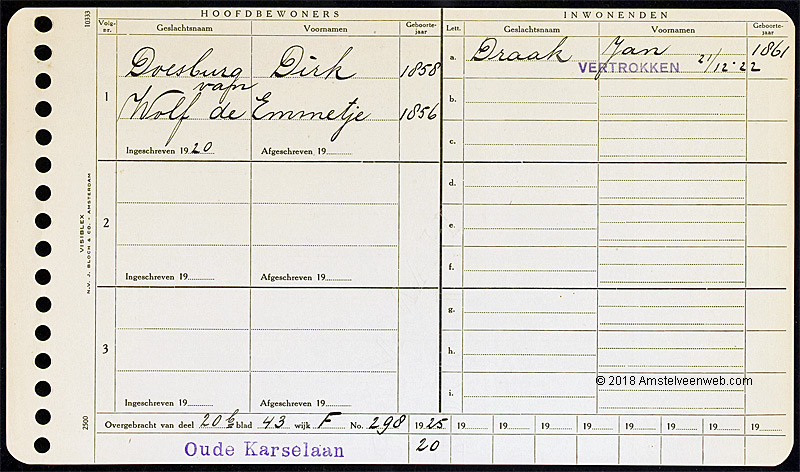 HOOFDBEWONERS
Volg-nr. Geslachtsnaam Voornamen Geboorte-jaar
1 Doesburg Dirk 1858
van
Wolf de Emmetje 1856
Ingeschreven 1920 Afgeschreven 19
2
Ingeschreven 19 Afgeschreven 19
3
Ingeschreven 19 Afgeschreven 19
INWONENDEN
Lett. Geslachtsnaam Voornamen Geboorte-jaar
a. Draak Jan 1861
VERTROKKEN 21/12-22
b.
c.
d.
e.
f.
g.
h.
i.
© 2018 Amstelveenweb.com
Overgebracht van deel 20 blad 43 wijk F No. 298 1925 19 19 19 19 19 19 19 19
Oude Karselaan 20
10333
VISIBLEX
N.V. J. BLOCH & CO. - AMSTERDAM
2500